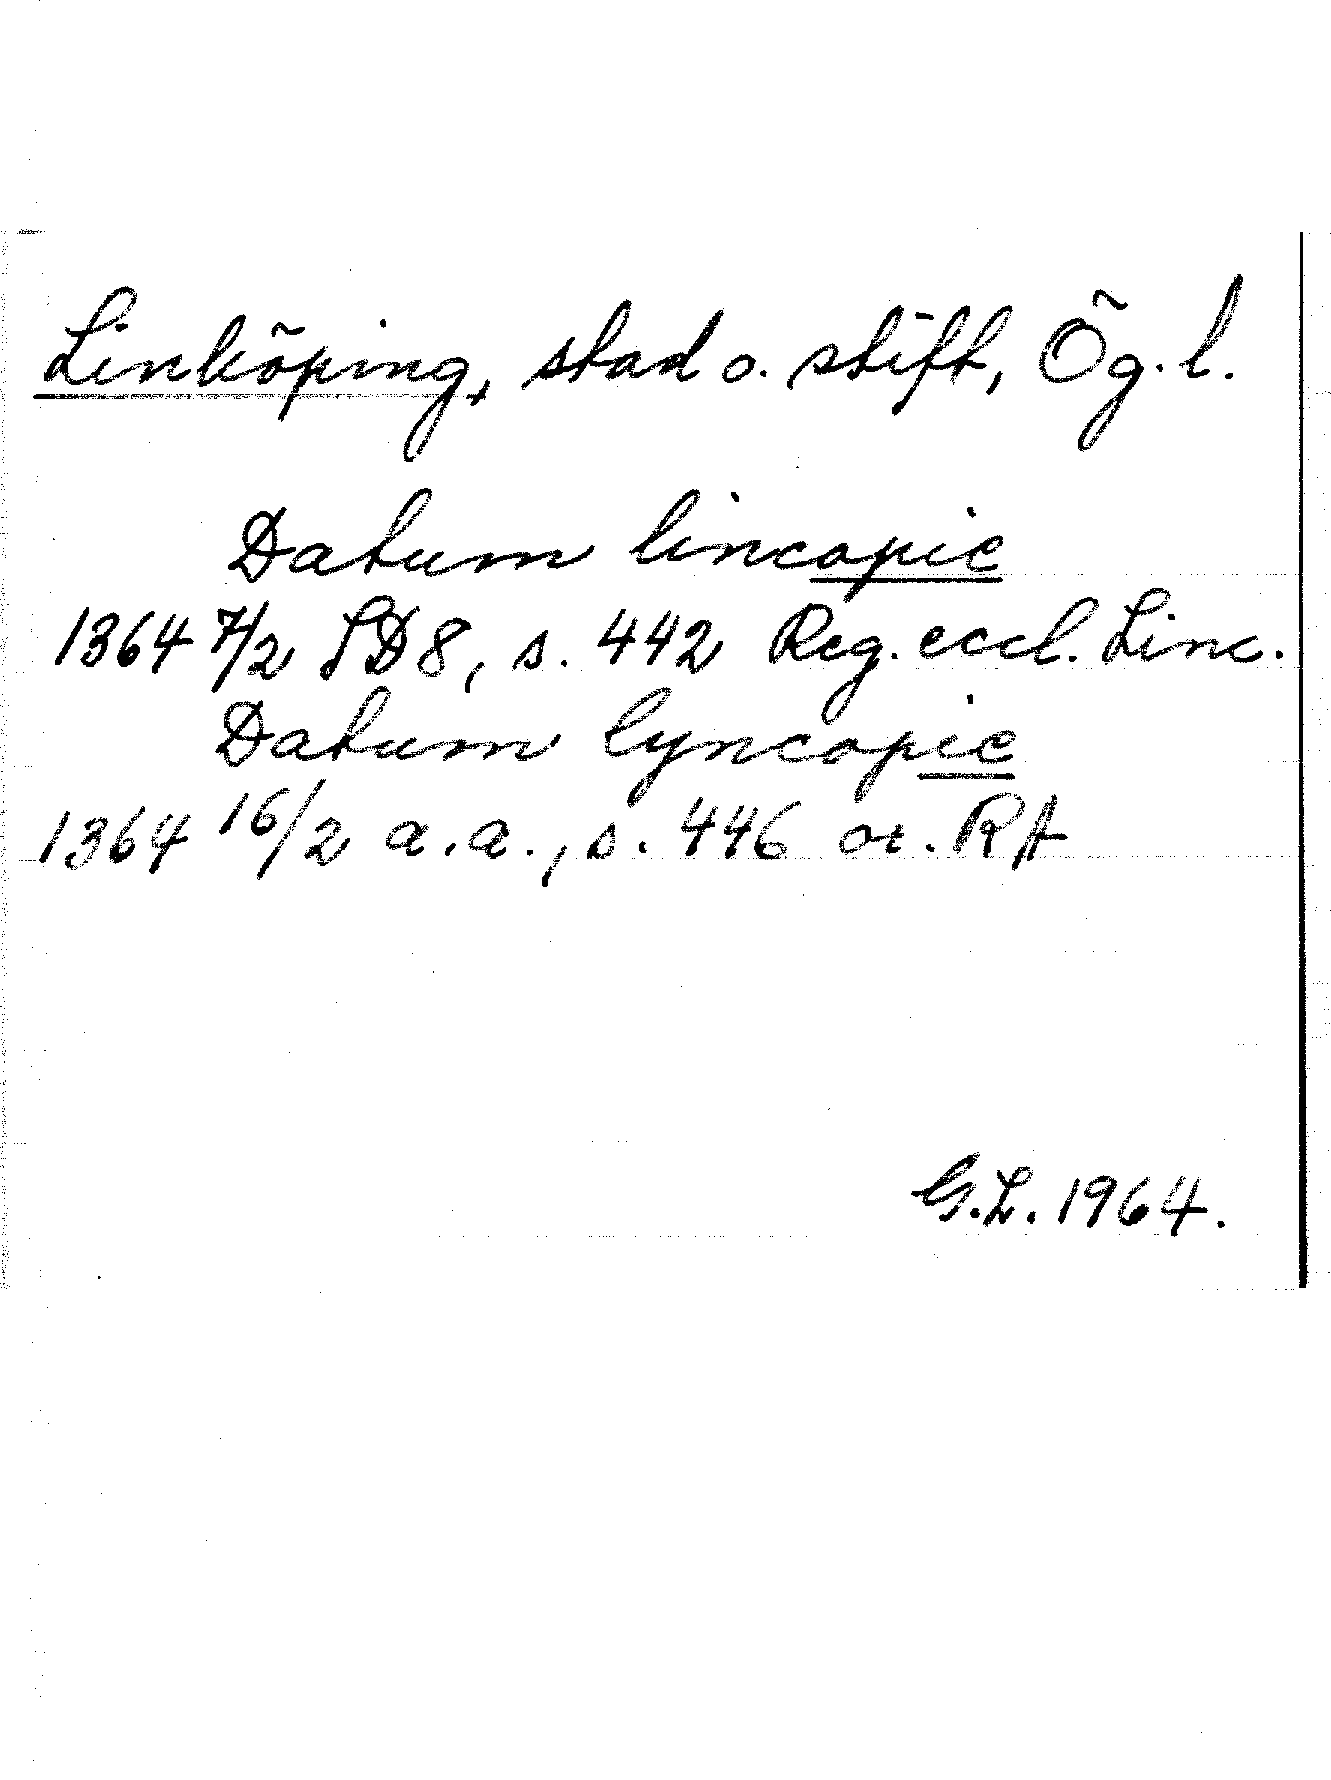 Linköping, stad o. stift, Ög. l.
Datum lincopie
1364 7/2 SD8, s. 442 Reg. eccl. Linc.
Datum lyncopie
1364 16/2 a.a., s. 446 or. RA
G.L. 1964.